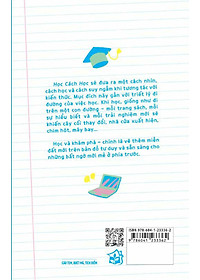 Học Cách Học sẽ đưa ra một cách nhìn,
cách học và cách suy ngẫm khi tương tác với
kiến thức. Mục đích này gắn với triết lý di
đường của việc học. Khi học, giống như đi
trên một con đường – mỗi trang sách, mỗi
sự hiểu biết và mỗi trải nghiệm mới sẽ
khiến cây cối thay đổi, nhà cửa xuất hiện,
chim hót, mây bay...
Học và khám phá – chính là vẽ thêm miền
đất mới trên bản đồ tư duy và sẵn sàng cho
những bất ngờ mới mẻ ở phía trước.
ISBN: 978-604-1-23336-2
9 786041 233362